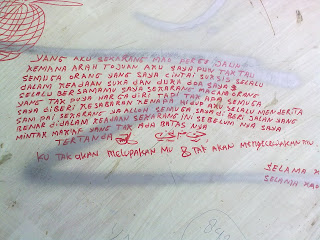 YANG AKU SEKARANG MAU PERGI JAUH
KEMANA ARAH TUJUAN AKU SAYA PUN TAK TAU
SEMUGA ORANG YANG SAYA CINTAI SUKSIS SELALU
DALAM KEADAAN SUKA DAN DUKA DOA SAYA
SELALU BERSAMAMU SAYA SEKARANG MACAM ORANG
YANG TAK PUNYA HARGA DIRI TAPI TAK APA SEMUGA
SAYA DIBERI KESABARAN KENAPA HIDUP AKU SELALU MENDERITA
SAMPAI SEKARANG YA ALLOH SEMUGA SAYA DI BERI JALAN YANG
BENAR DIDALAM KEADAAN SEKARANG INI SEBELUM NYA SAYA
MINTAK MAKAF YANG TAK ADA BATAS NYA
TERTANDA
KU TAK AKAN MELUPAKAN MU & TAK AKAN MENGECEWAKAN MU
SELAMA
SELAMA